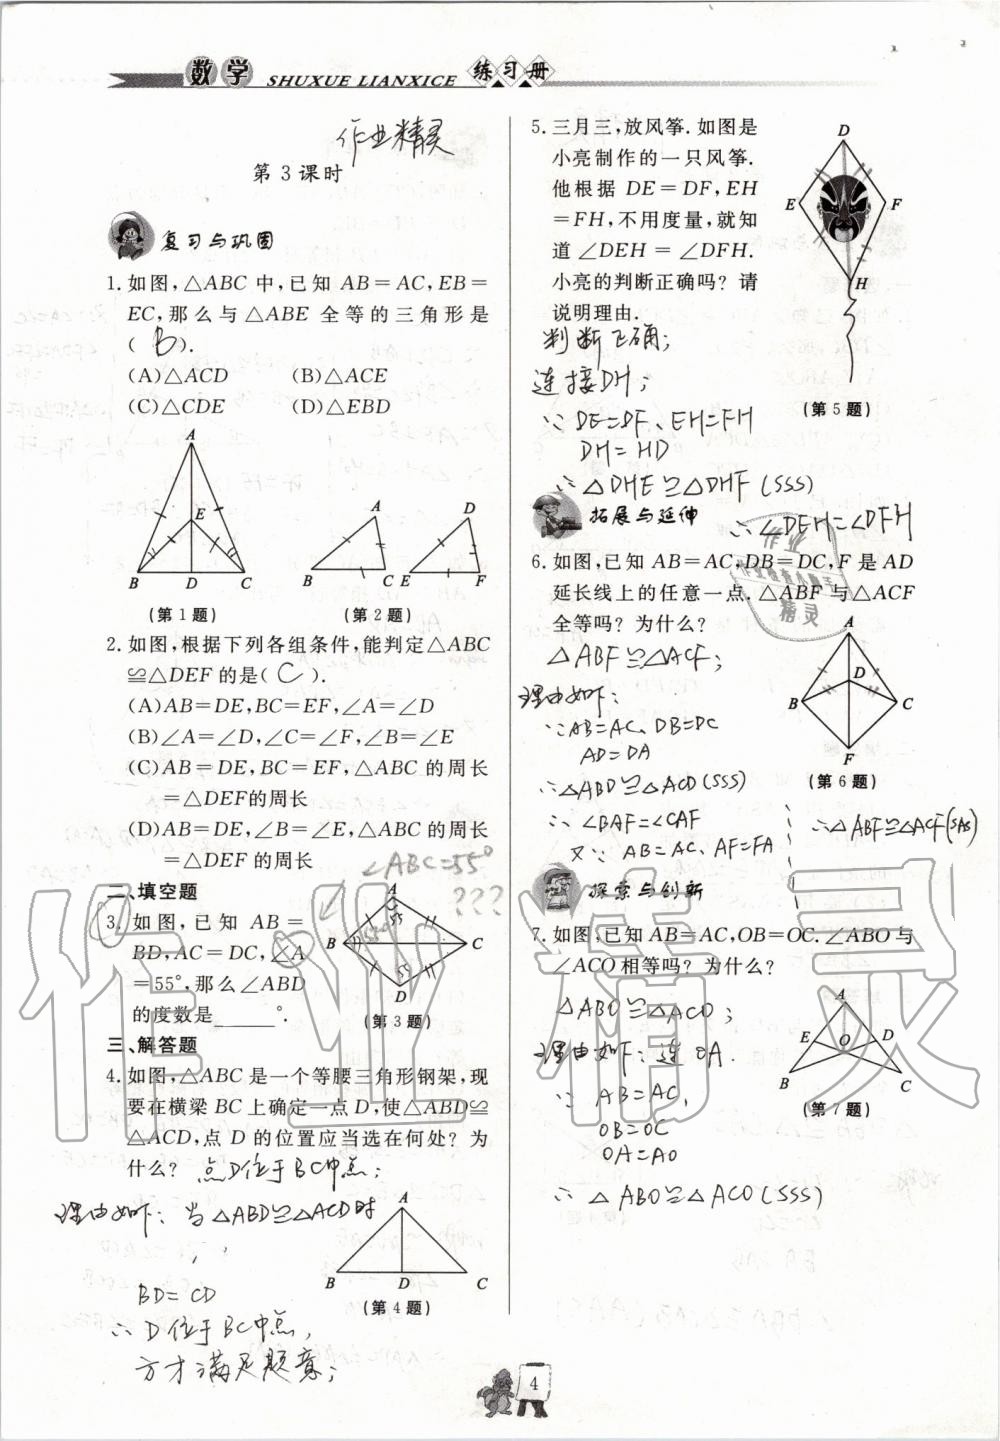 数学 SHUXUE LIANXICE 练习册
作业精灵
第3课时
复习与巩固
1. 如图,△ABC 中,已知 AB=AC,EB=
EC,那么与△ABE 全等的三角形是
( B ).
(A)△ACD (B)△ACE
(C)△CDE (D)△EBD
A
E
B D C
(第1题)
A
B C
D
E F
(第2题)
2. 如图,根据下列各组条件,能判定△ABC
≌△DEF 的是( C ).
(A)AB=DE,BC=EF,∠A=∠D
(B)∠A=∠D,∠C=∠F,∠B=∠E
(C)AB=DE,BC=EF,△ABC 的周长
=△DEF的周长
(D)AB=DE,∠B=∠E,△ABC 的周长
=△DEF 的周长
∠ABC=55°
???
二、填空题
3. 如图,已知 AB=
BD,AC=DC,∠A
=55°,那么∠ABD
的度数是______°.
A
55
B C
55
D
(第3题)
三、解答题
4. 如图,△ABC 是一个等腰三角形钢架,现
要在横梁 BC 上确定一点 D,使△ABD≌
△ACD,点 D 的位置应当选在何处?为
什么? 点D位于BC中点;
理由如下:当△ABD≌△ACD时
,
BD=CD
∴D位于BC中点,
方才满足题意;
A
B D C
(第4题)
5. 三月三,放风筝.如图是
小亮制作的一只风筝.
他根据 DE=DF,EH
=FH,不用度量,就知
道 ∠DEH=∠DFH.
小亮的判断正确吗?请
说明理由.
D
E F
H
(第5题)
判断正确;
连接DH;
∵DE=DF、EH=FH
DH=HD
∴△DHE≌△DHF(SSS)
∴∠DEH=∠DFH
拓展与延伸
6. 如图,已知 AB=AC,DB=DC,F 是 AD
延长线上的任意一点.△ABF 与△ACF
全等吗?为什么?
△ABF≌△ACF;
理由如下:
∵AB=AC、DB=DC
AD=DA
∴△ABD≌△ACD(SSS)
∴∠BAF=∠CAF
又∵AB=AC、AF=FA
∴△ABF≌△ACF(SAS)
A
D
B C
F
(第6题)
探索与创新
7. 如图,已知AB=AC,OB=OC.∠ABO与
∠ACO相等吗?为什么?
△ABO≌△ACO;
理由如下:连OA.
∵AB=AC,
OB=OC
OA=AO
∴△ABO≌△ACO(SSS)
A
E D
O
B C
(第7题)
作业精灵
作业
精灵
4